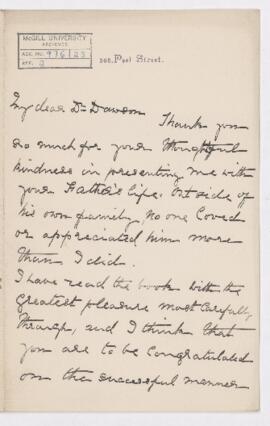 McGILL UNIVERSITY
ARCHIVES
ACC. NO. 976/23
REF. 2
Peel Street.
My dear Dr Dawson
Thank you
so much for your thoughtful
kindness in presenting me with
your Father's life. Out side of
his own family, no one loved
or appreciated him more
than I did.
I have read the book with the
greatest pleasure most carefully
through, and I think that
you are to be congratulated
on the successful manner